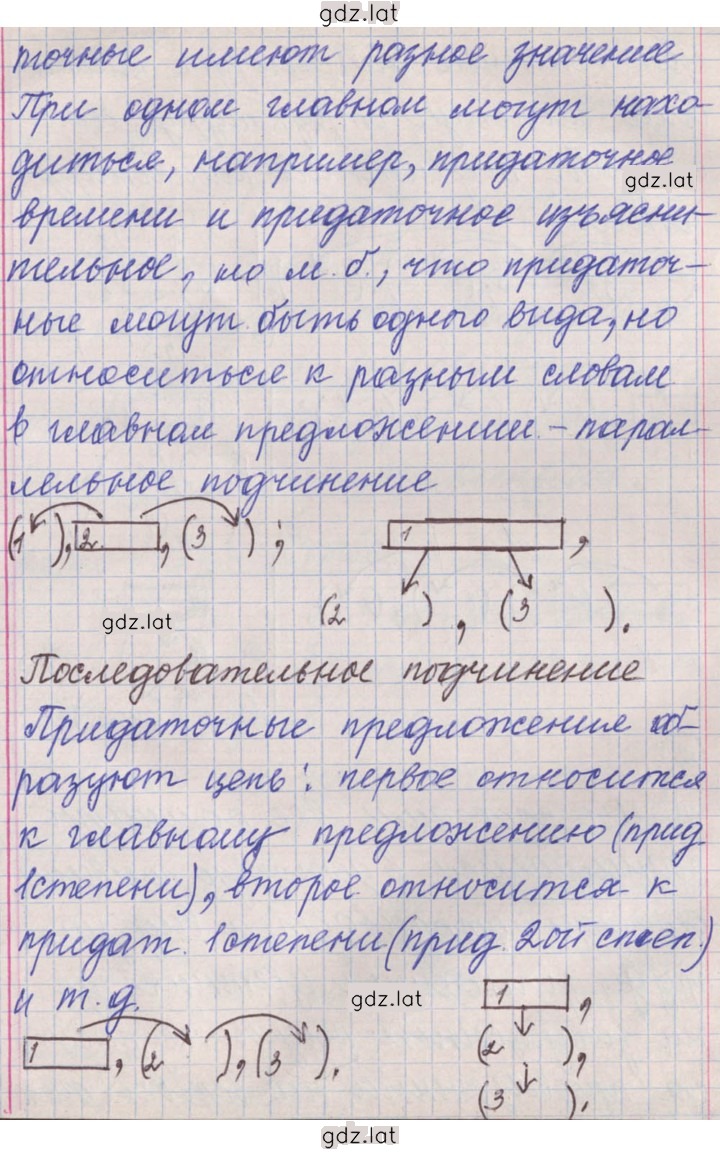 gdz.lat
точные имеют разное значение
При одном главном могут нахо-
диться, например, придаточное
gdz.lat
времени и придаточное изъясни-
тельное, но м.б., что придаточ-
ные могут быть одного вида, но
относиться к разным словам
в главном предложении - парал-
лельное подчинение
(1 ), 2 , (3 ) ; 1 ,
gdz.lat
(2 ) , (3 ).
Последовательное подчинение
Придаточные предложения об-
разуют цепь: первое относится
к главному предложению (прид.
1степени), второе относится к
придат. 1степени (прид. 2ой степ.)
и т.д.
gdz.lat
1 ,
1 , (2 ), (3 ).
(2 ),
(3 ).
gdz.lat